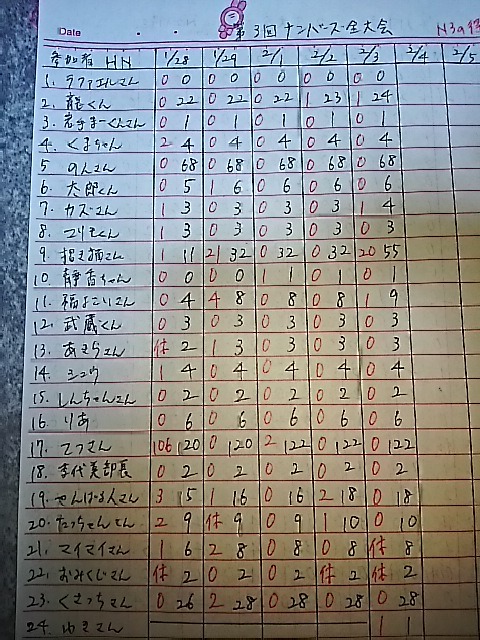 第3回ナンバーズ全大会 N3a
参加者 HN 1/28 1/29 2/1 2/2 2/3 2/4 2/5
1. ラファエルさん 0 0 0 0 0 0 0 0 0 0
2. 龍くん 0 22 0 22 0 22 1 23 1 24
3. 岩手まーくんさん 0 1 0 1 0 1 0 1 0 1
4. くまちゃん 2 4 0 4 0 4 0 4 0 4
5 のんさん 0 68 0 68 0 68 0 68 0 68
6. 太郎くん 0 5 1 6 0 6 0 6 0 6
7. カズさん 1 3 0 3 0 3 0 3 1 4
8. くん 1 3 0 3 0 3 0 3 0 3
9. 招き猫さん 1 11 21 32 0 32 0 32 20 55
10. 静香ちゃん 0 0 0 0 1 1 0 1 0 1
11. 福よこいさん 0 4 4 8 0 8 0 8 1 9
12. 武蔵くん 0 3 0 3 0 3 0 3 0 3
13. さん 休 2 1 3 0 3 0 3 0 3
14. シュウ 1 4 0 4 0 4 0 4 0 4
15. しんちゃんさん 0 2 0 2 0 2 0 2 0 2
16. りあ 0 6 0 6 0 6 0 6 0 6
17. てつさん 106 120 0 120 2 122 0 122 0 122
18. 李代美部長 0 2 0 2 0 2 0 2 0 2
19. さん 3 15 1 16 0 16 2 18 0 18
20. たっちゃんさん 2 9 休 9 0 9 1 10 0 10
21. マイマイさん 1 6 2 8 0 8 0 8 休 8
22. おみくじさん 休 2 0 2 0 2 休 2 休 2
23. くさっちさん 0 26 2 28 0 28 0 28 0 28
24. ゆきさん 1 1